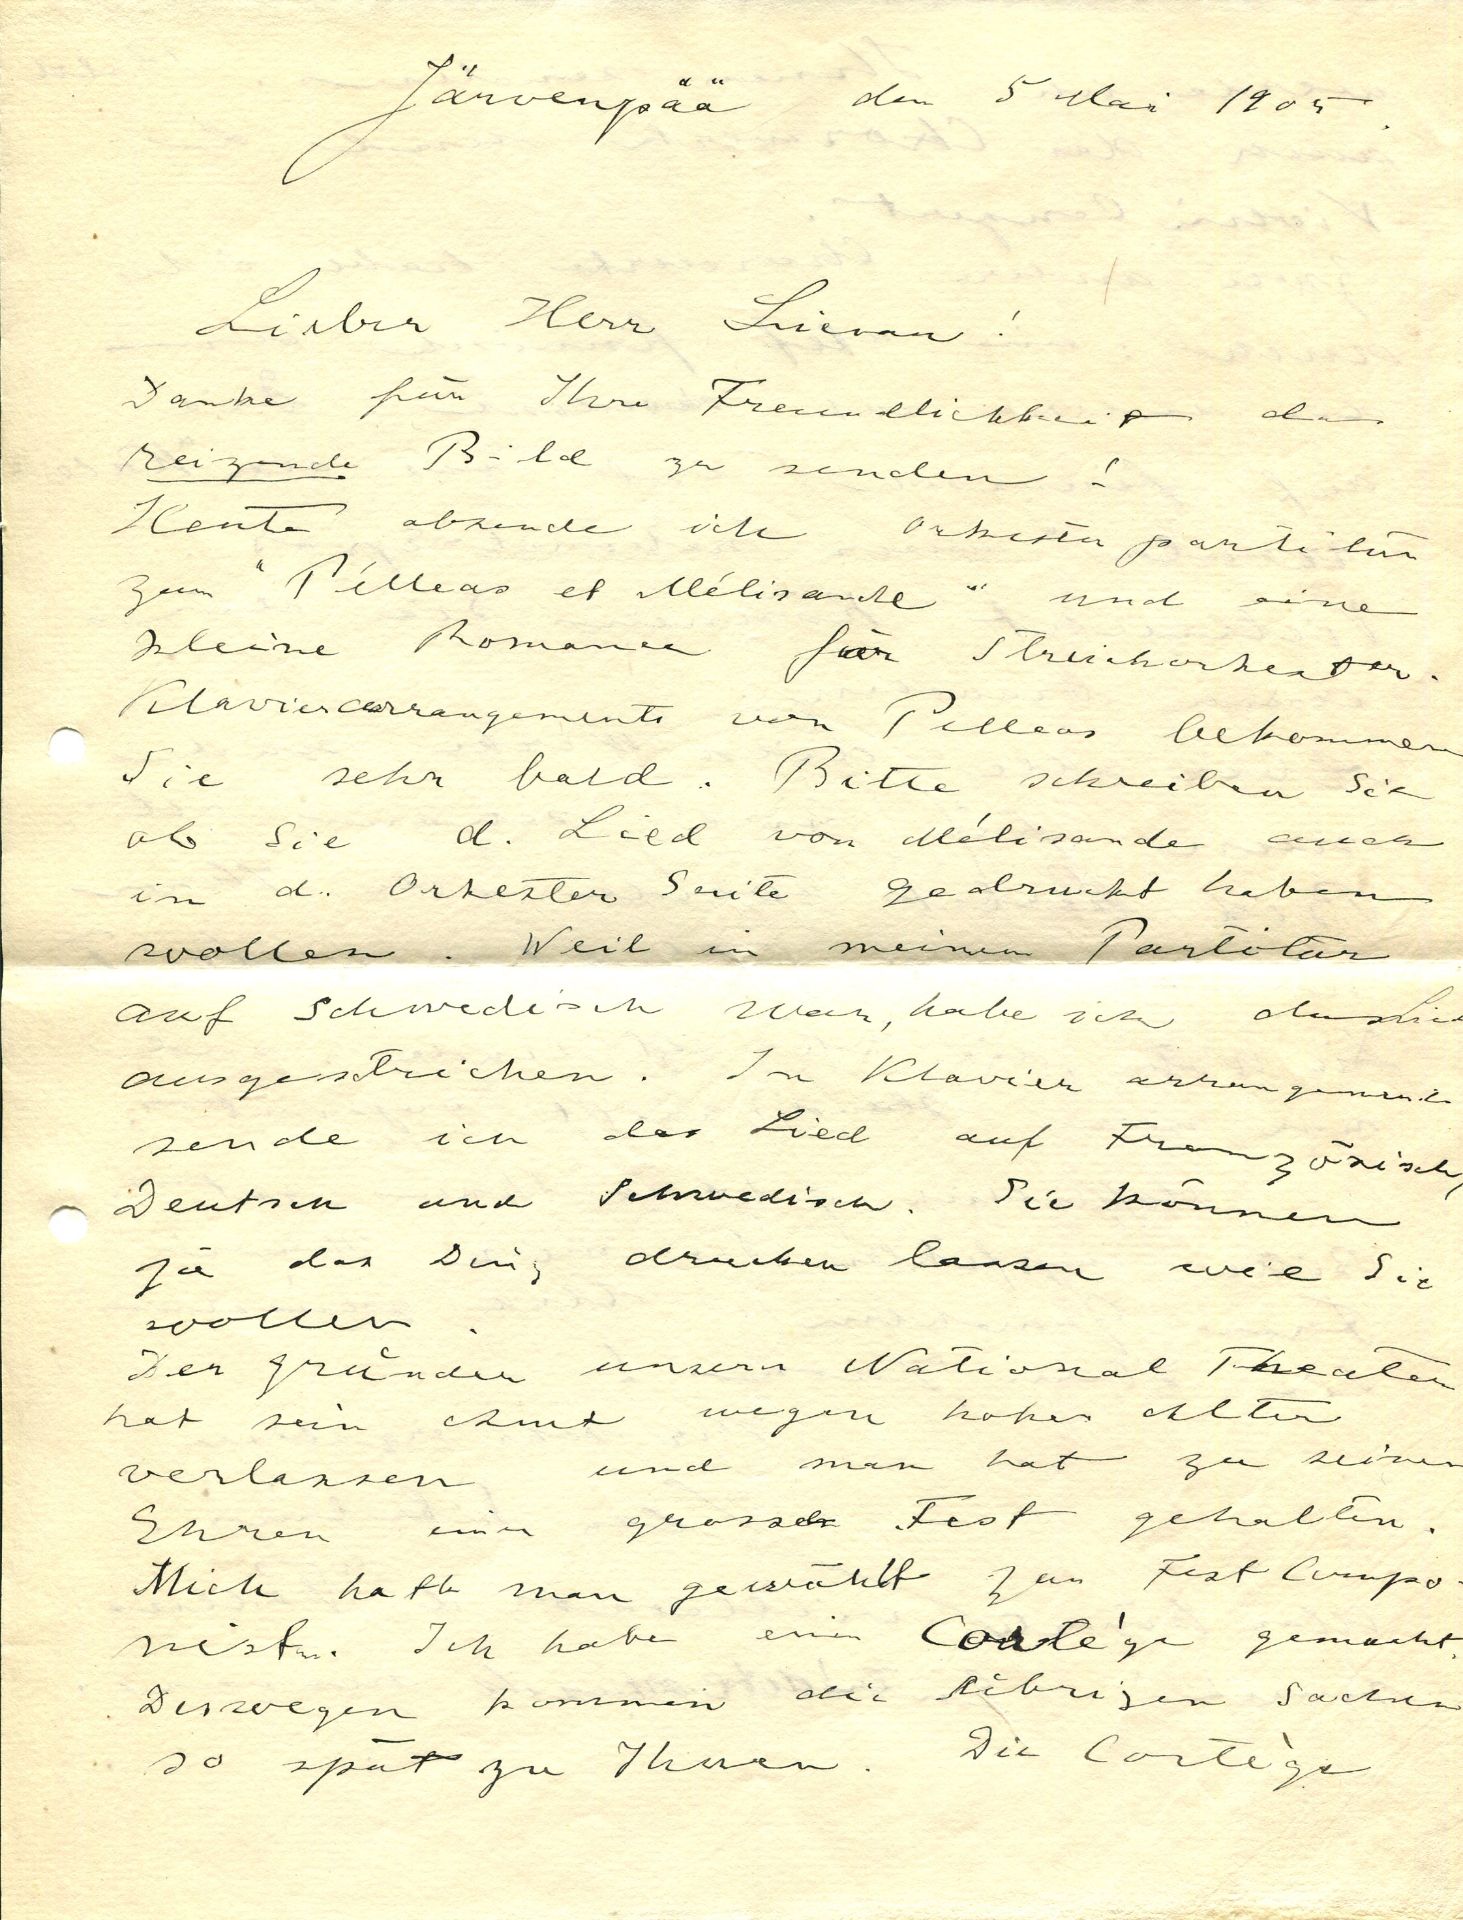 Järvenpää den 5 Mai 1905.
Lieber Herr Lienau!
Danke für Ihre Freundlichkeit das
reizende Bild zu senden!
Heute absende ich Orkesterpartitur
zum "Pélleas et Mélisande" und eine
kleine Romance für Streichorkester.
Klavierarrangements von Pelleas bekommen
Sie sehr bald. Bitte schreiben Sie
ob Sie d. Lied von Mélisande auch
in d. Orkester Suite gedruckt haben
wollen. Weil in meinem Partitur
auf Schwedisch war, habe ich das Lied
ausgestrichen. In Klavier arrangements
sende ich das Lied auf Französisch,
Deutsch und Schwedisch. Sie können
ja das Ding drucken lassen wie Sie
wollen.
Der Gründer unsern National Theater
hat sein Amt wegen hohes Alter
verlassen und man hat zu seinen
Ehren ein grosses Fest gehalten.
Mich hatte man gewählt zum Fest Compo-
nisten. Ich habe ein Cortège gemacht.
Deswegen kommen die übrigen Sachen
so spät zu Ihnen. Die Cortège